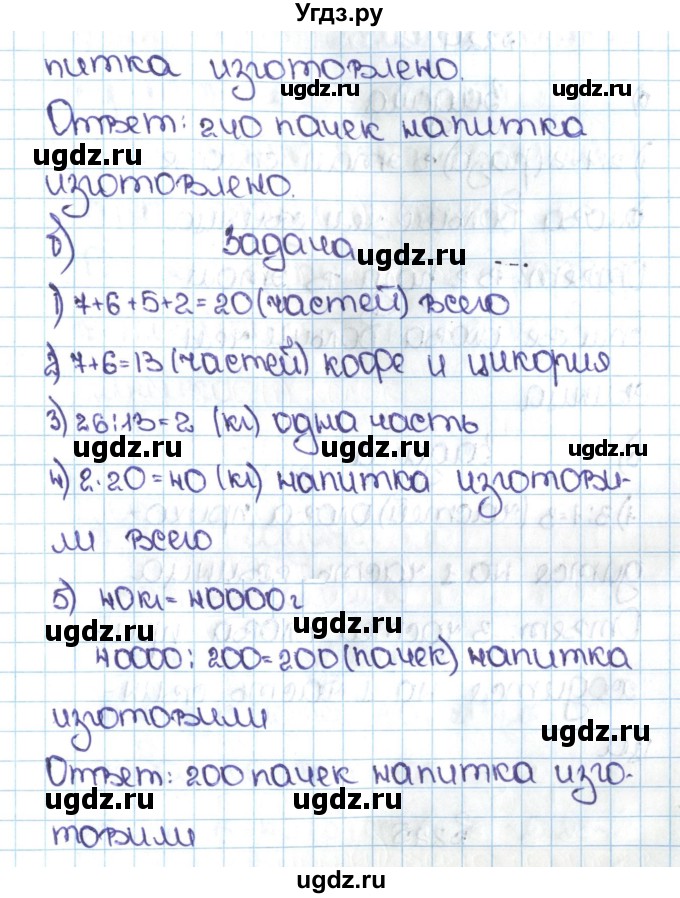 Угдз.ру
питка изготовлено.
ugdz.ru ugdz.ru
Ответ: 240 пачек напитка
ugdz.ru
изготовлено.
б) Задача ugdz.ru ...
1) 7+6+5+2=20 (частей) всего
ugdz.ru
2) 7+6=13 (частей) кофе и цикория
3) 26:13=2 (кг) одна часть
ugdz.ru ugdz.ru ugdz.ru
4) 2·20=40 (кг) напитка изготови-
ли всего
5) 40кг=40000г
ugdz.ru ugdz.ru
40000:200=200(пачек) напитка
изготовили
ugdz.ru
Ответ: 200 пачек напитка изго-
ugdz.ru ugdz.ru
товили
ugdz.ru